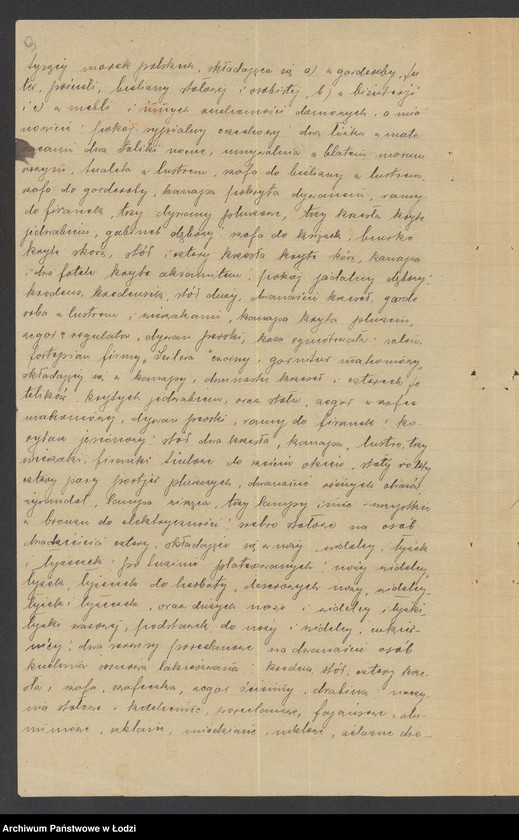 9
tysięcy marek polskich, składająca się a) z garderoby, fu-
ter, pościeli, bielizny stołowej i osobistej, b) z biżuterji
i c) z mebli i innych ruchomości domowych, a mia-
nowicie: pokój sypialny orzechowy: dwa łóżka z mate-
racami dwa stoliki nocne, umywalnia z blatem marmu-
rowym, tualeta z lustrem, szafa do bielizny z lustrem,
szafa do garderoby, kanapa pokryta dywanem, ramy
do firanek, trzy dywany pluszowe, trzy krzesła kryte
jedwabiem, gabinet dębowy: szafa do książek, biurko
kryte skórą, stół i cztery krzesła kryte skórą, kanapa
i dwa fotele kryte aksamitem; pokój jadalny dębowy:
kredens, kredensik, stół duży, dwanaście krzeseł, garde-
roba z lustrem i wieszakami, kanapa kryta pluszem,
zegar regulator, dywan perski, kasa ogniotrwała; salon:
fortepian firmy "Seilera" czarny, garnitur mahoniowy,
składający się z kanapy, dwunastu krzeseł i czterech fo-
telików krytych jedwabiem, oraz stołu, zegar z szafce
mahoniowy, dywan perski, ramy do firanek; ko-
rytarz jesionowy: stół dwa krzesła, kanapa, lustro, trzy
wieszaki, firanki tiulowe do sześciu okien, story rolety,
cztery pary portjer pluszowych, dwanaście różnych obrazów,
żyrandol, lampa wisząca, trzy lampy inne - wszystko
z bronzu do elektryczności; srebro stołowe na osób
dwadzieścia cztery, składające się z noży, widelcy, łyżek
i łyżeczek; po tuzinie platerowanych: noży widelcy,
łyżek, łyżeczek do herbaty, deserowych noży, widelcy,
łyżek i łyżeczek, oraz dużych noża i widelcy i łyżki
łyżki wazowej, podstawek do noży i widelcy, cukier-
nicy; dwa serwisy porcelanowe na dwanaście osób
kuchnia lakierowana: kredens, stół, cztery krze-
sła, szafa, szafeczka, zegar ścienny, drabina; naczy-
nia stołowe i kuchenne, porcelanowe, fajansowe, alu-
miniowe, szklane, miedziane, niklowe, żelazne dre-
Archiwum Państwowe w Łodzi